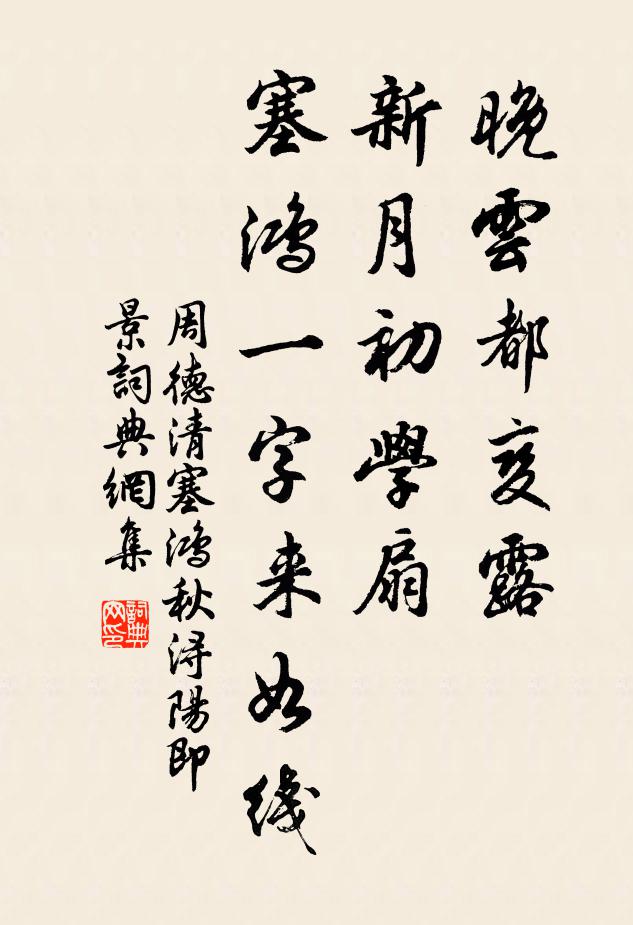 晚雲都变露
新月初學扇
塞鴻一字来如綫
周德清塞鴻秋浔陽即
景詞典網集
詞典
网印